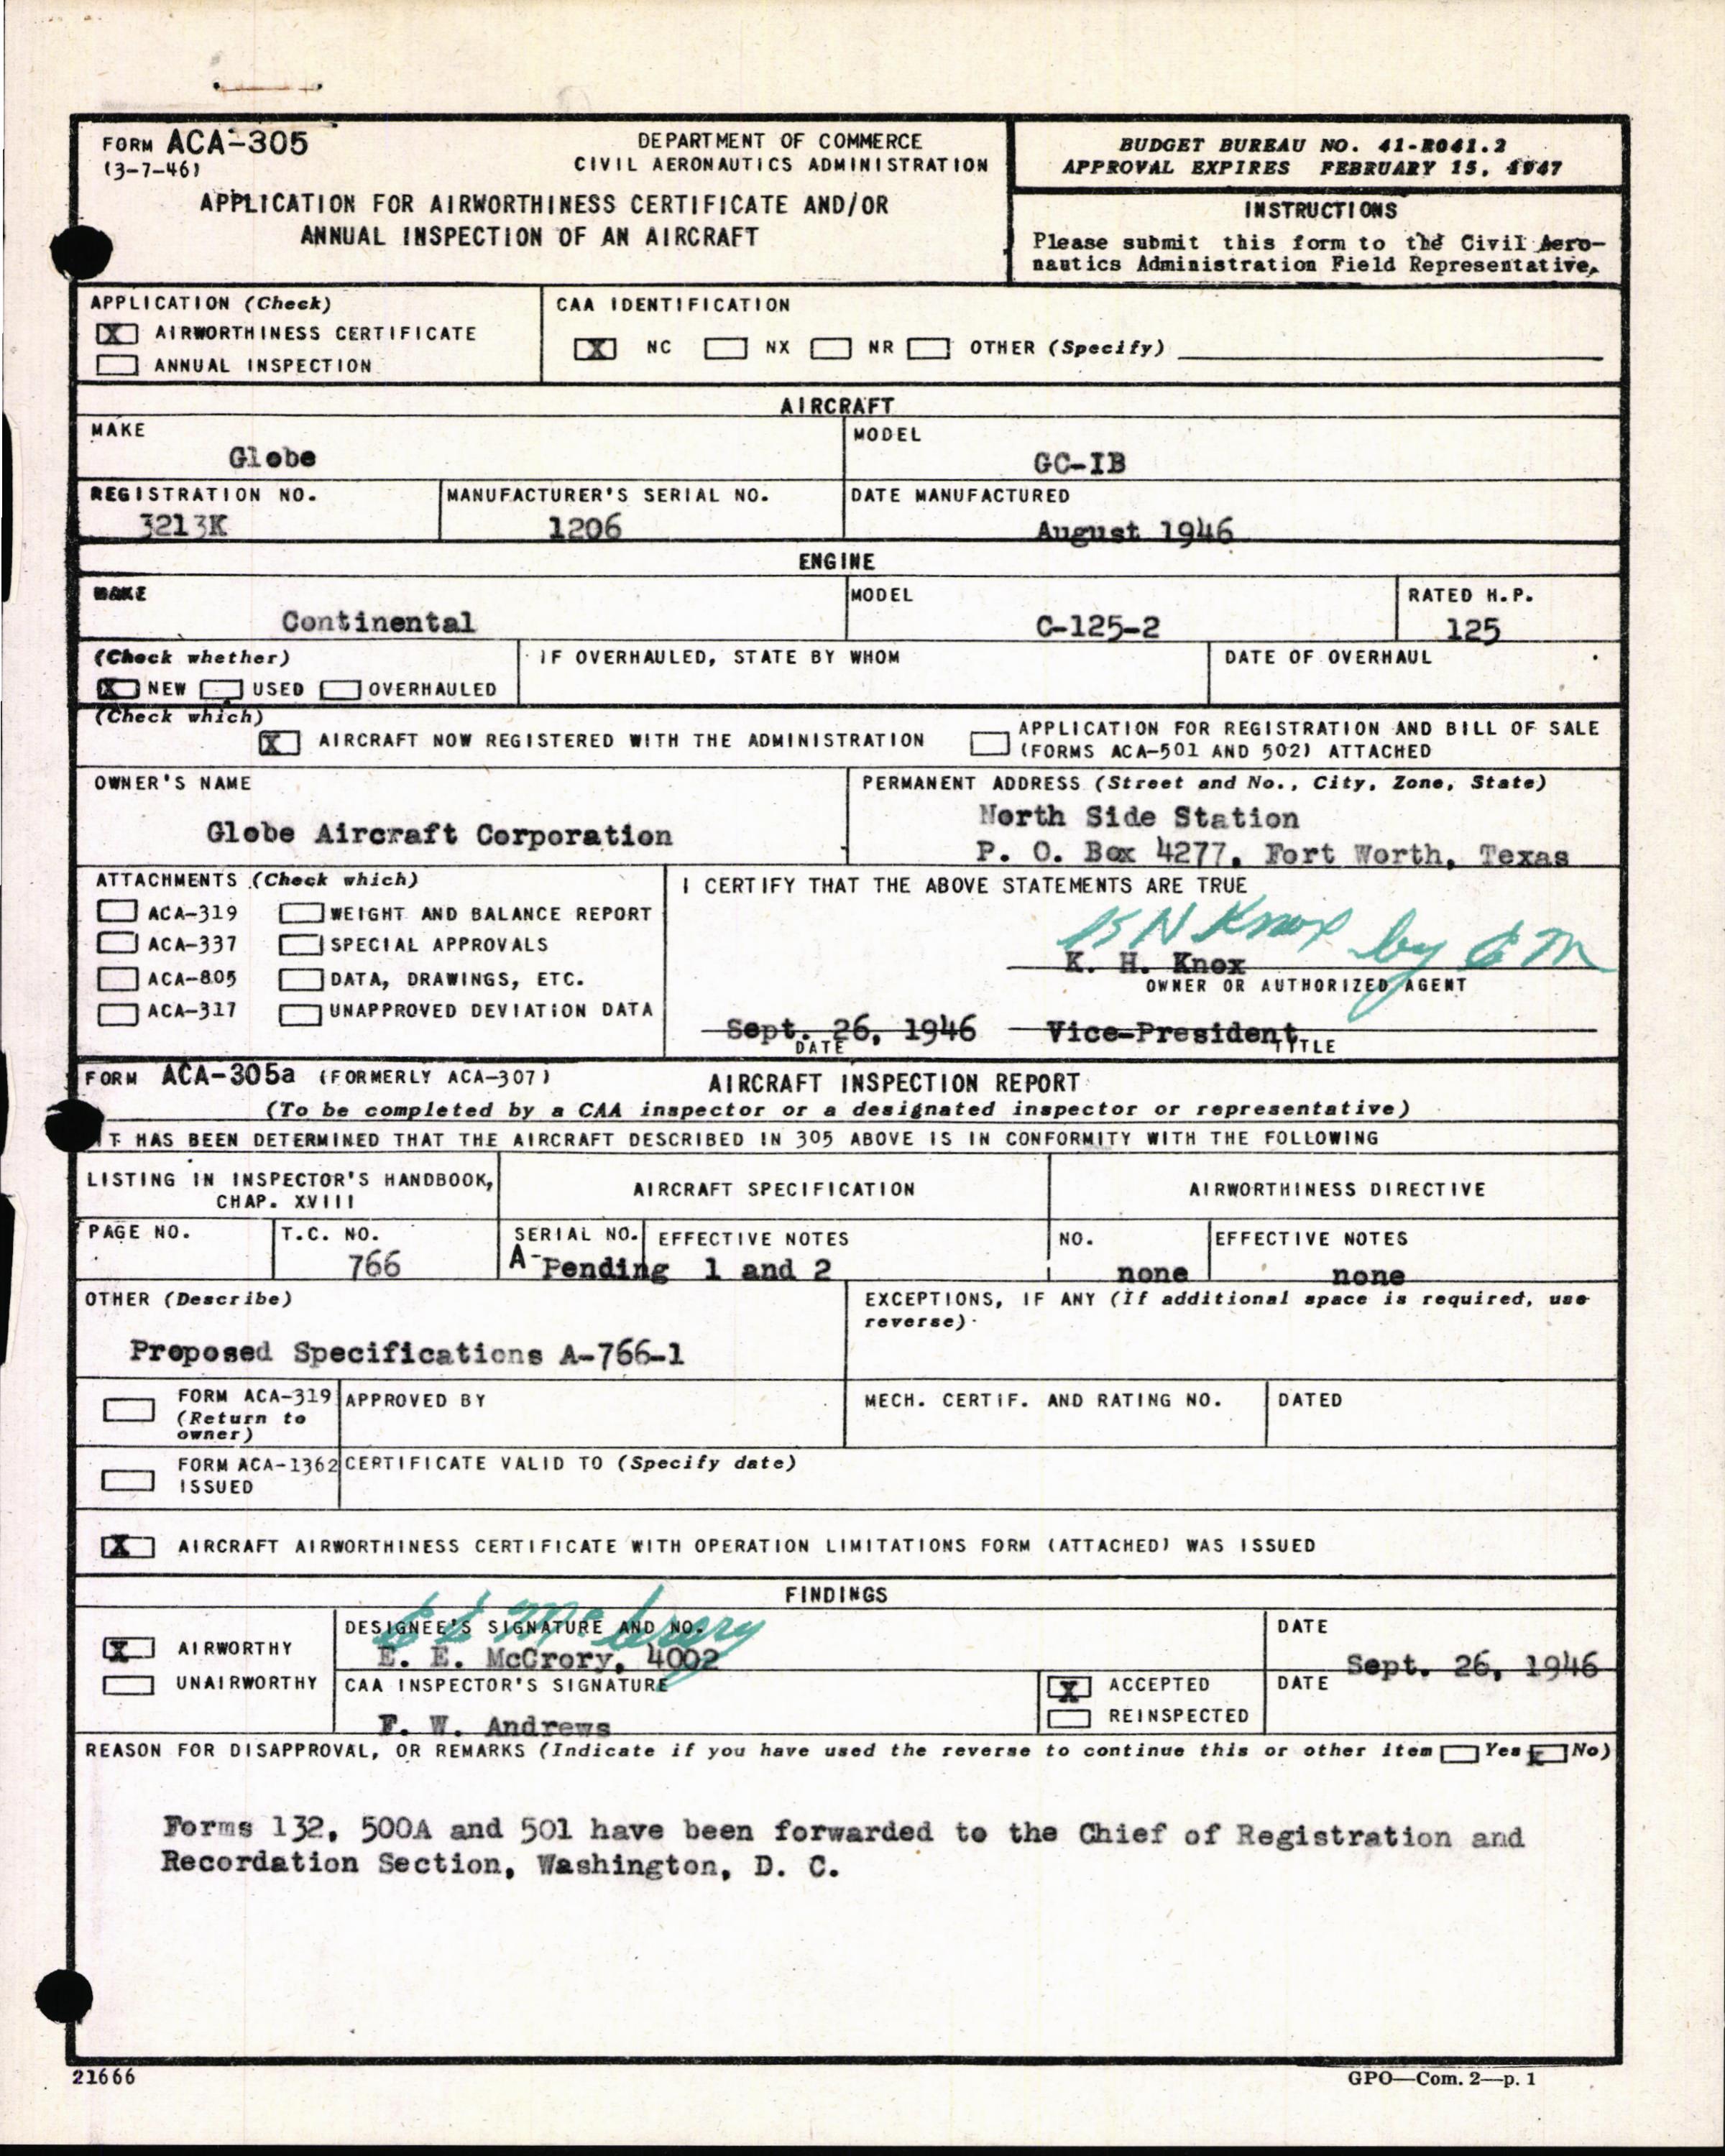 FORM ACA-305
(3-7-46)
DEPARTMENT OF COMMERCE
CIVIL AERONAUTICS ADMINISTRATION
APPLICATION FOR AIRWORTHINESS CERTIFICATE AND/OR
ANNUAL INSPECTION OF AN AIRCRAFT
BUDGET BUREAU NO. 41-R041.2
APPROVAL EXPIRES FEBRUARY 15, 1947
INSTRUCTIONS
Please submit this form to the Civil Aero-
nautics Administration Field Representative.
APPLICATION (Check)
X AIRWORTHINESS CERTIFICATE
ANNUAL INSPECTION
CAA IDENTIFICATION
X NC NX NR OTHER (Specify)
AIRCRAFT
MAKE
Globe
MODEL
GC-IB
REGISTRATION NO.
3213K
MANUFACTURER'S SERIAL NO.
1206
DATE MANUFACTURED
August 1946
ENGINE
MAKE
Continental
MODEL
C-125-2
RATED H.P.
125
(Check whether)
X NEW USED OVERHAULED
IF OVERHAULED, STATE BY WHOM
DATE OF OVERHAUL
(Check which)
X AIRCRAFT NOW REGISTERED WITH THE ADMINISTRATION
APPLICATION FOR REGISTRATION AND BILL OF SALE
(FORMS ACA-501 AND 502) ATTACHED
OWNER'S NAME
Globe Aircraft Corporation
PERMANENT ADDRESS (Street and No., City, Zone, State)
North Side Station
P. O. Box 4277, Fort Worth, Texas
ATTACHMENTS (Check which)
ACA-319 WEIGHT AND BALANCE REPORT
ACA-337 SPECIAL APPROVALS
ACA-805 DATA, DRAWINGS, ETC.
ACA-317 UNAPPROVED DEVIATION DATA
I CERTIFY THAT THE ABOVE STATEMENTS ARE TRUE
Knox by EM
K. H. Knox
OWNER OR AUTHORIZED AGENT
Sept. 26, 1946 Vice-President
DATE TITLE
FORM ACA-305a (FORMERLY ACA-307) AIRCRAFT INSPECTION REPORT
(To be completed by a CAA inspector or a designated inspector or representative)
IT HAS BEEN DETERMINED THAT THE AIRCRAFT DESCRIBED IN 305 ABOVE IS IN CONFORMITY WITH THE FOLLOWING
LISTING IN INSPECTOR'S HANDBOOK,
CHAP. XVIII
AIRCRAFT SPECIFICATION
AIRWORTHINESS DIRECTIVE
PAGE NO.
T.C. NO.
766
SERIAL NO.
A-Pending
EFFECTIVE NOTES
1 and 2
NO.
none
EFFECTIVE NOTES
none
OTHER (Describe)
Proposed Specifications A-766-1
EXCEPTIONS, IF ANY (If additional space is required, use
reverse)
FORM ACA-319
(Return to
owner)
APPROVED BY
MECH. CERTIF. AND RATING NO.
DATED
FORM ACA-1362
ISSUED
CERTIFICATE VALID TO (Specify date)
X AIRCRAFT AIRWORTHINESS CERTIFICATE WITH OPERATION LIMITATIONS FORM (ATTACHED) WAS ISSUED
FINDINGS
X AIRWORTHY
UNAIRWORTHY
DESIGNEE'S SIGNATURE AND NO.
E E McCrory
E. E. McCrory, 4002
DATE
Sept. 26, 1946
CAA INSPECTOR'S SIGNATURE
F. W. Andrews
X ACCEPTED
REINSPECTED
DATE
REASON FOR DISAPPROVAL, OR REMARKS (Indicate if you have used the reverse to continue this or other item Yes x No)
Forms 132, 500A and 501 have been forwarded to the Chief of Registration and
Recordation Section, Washington, D. C.
21666
GPO—Com. 2—p. 1